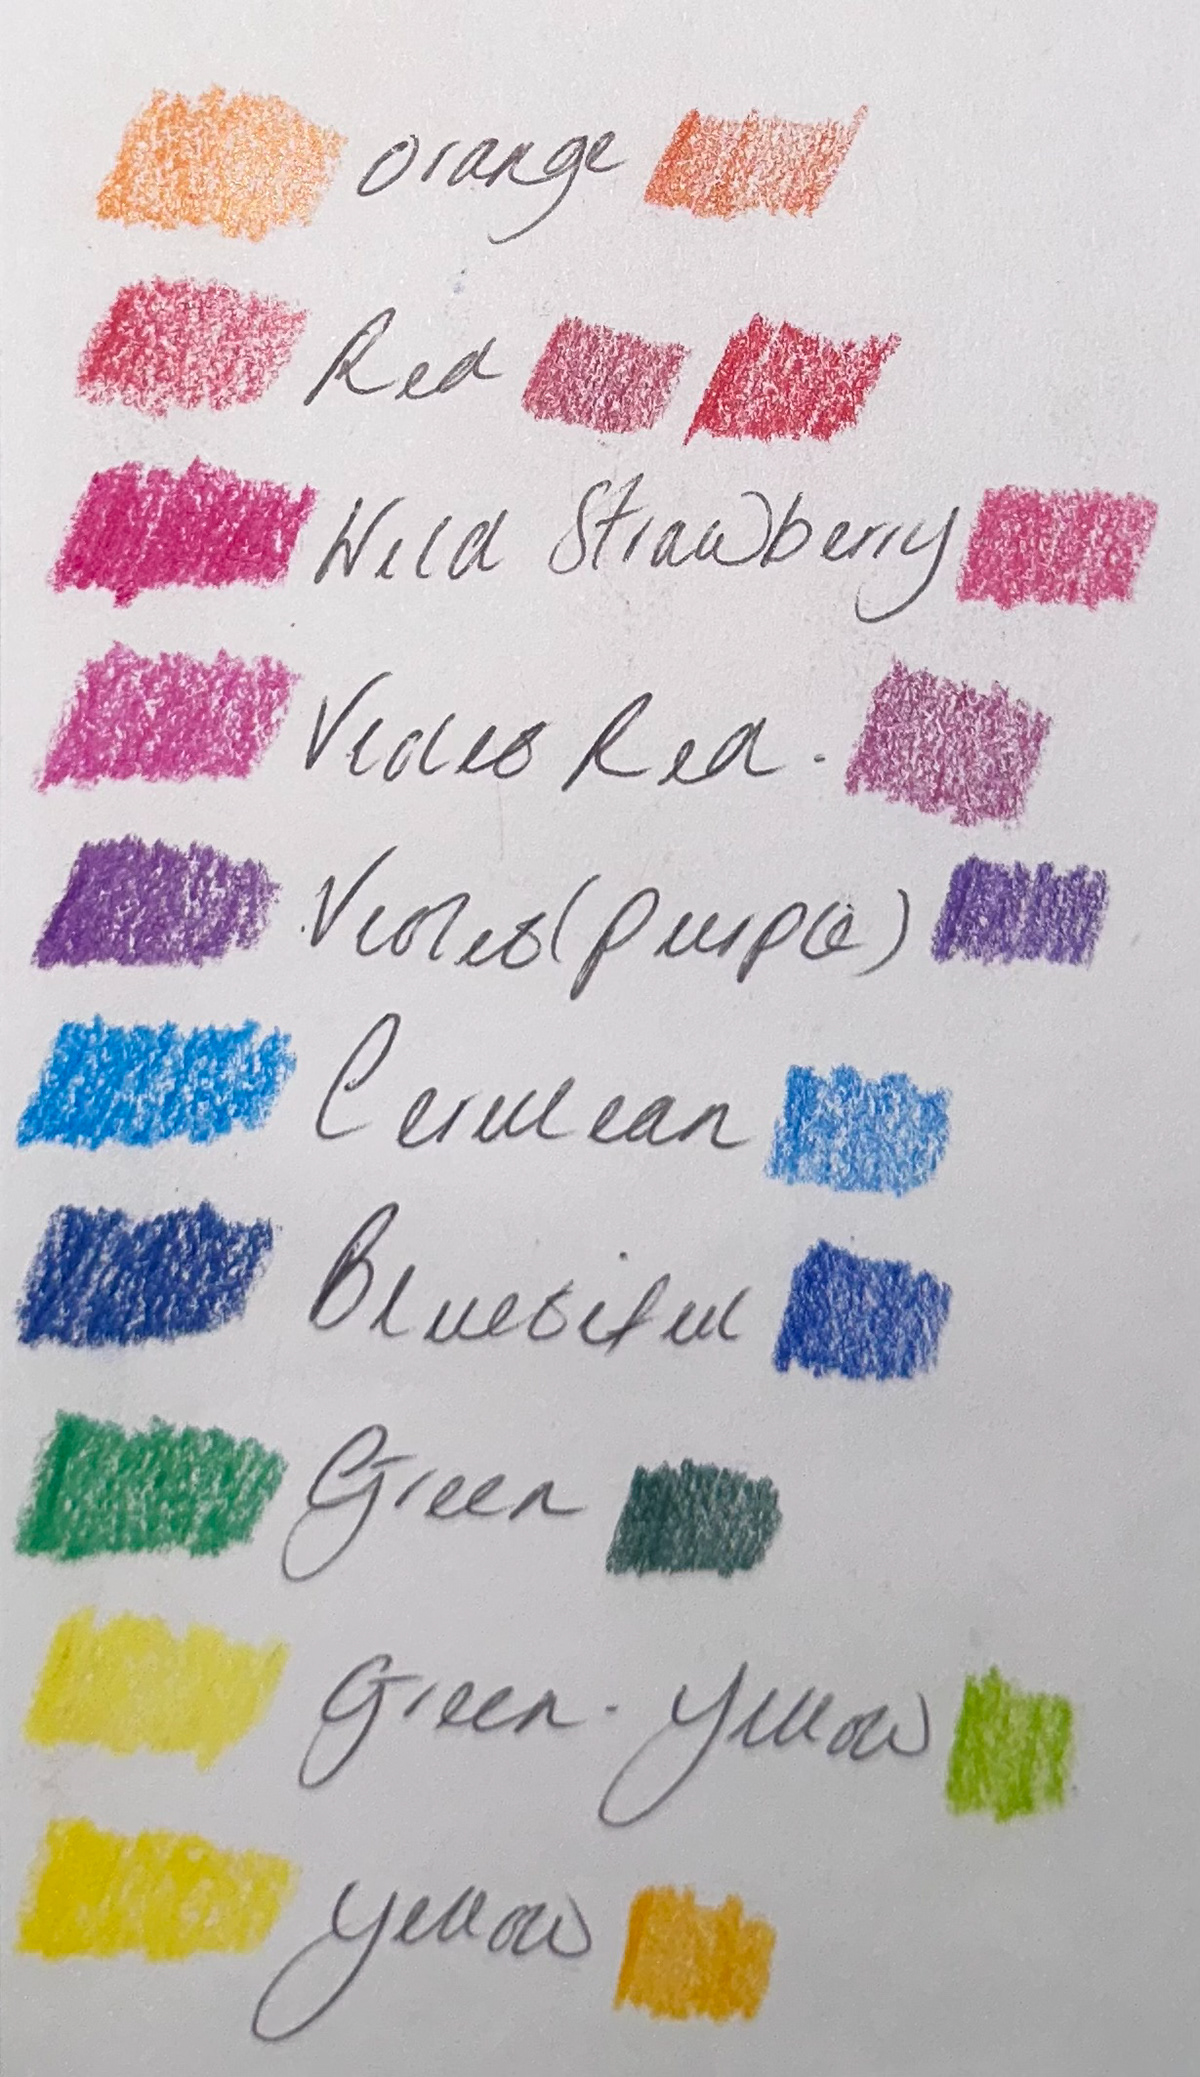 Orange
Red
Wild Strawberry
Violet Red.
Violet (purple)
Cerulean
Bluetiful
Green
Green-Yellow
Yellow